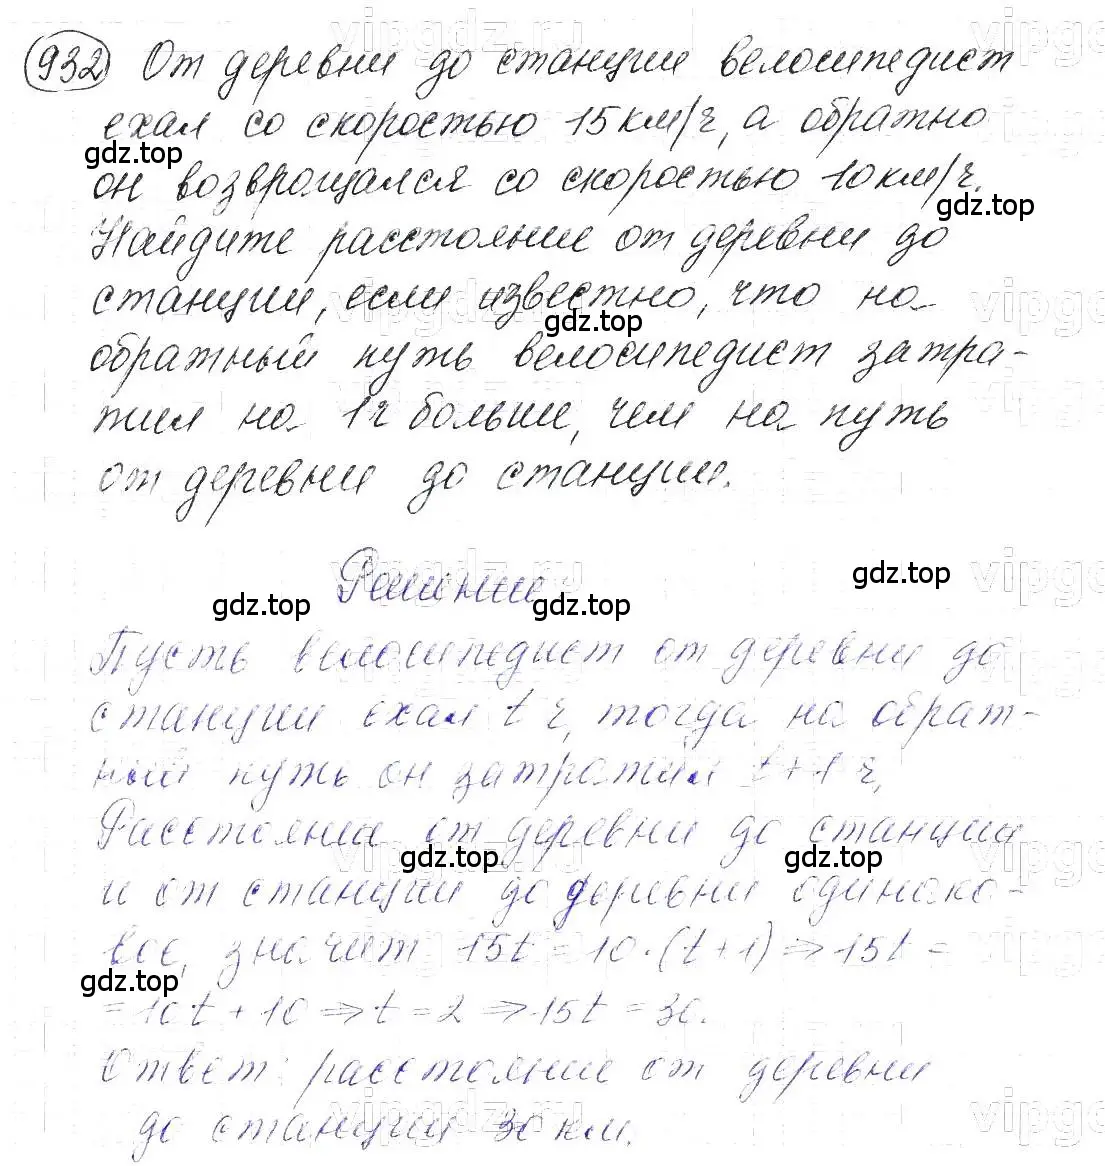 932 От деревни до станции велосипедист
ехал со скоростью 15 км/ч, а обратно
он возвращался со скоростью 10 км/ч.
Найдите расстояние от деревни до
станции, если известно, что на
обратный путь велосипедист затра-
тил на 1 ч больше, чем на путь
от деревни до станции.
Решение
Пусть велосипедист от деревни до
станции ехал t ч, тогда на обрат-
ный путь он затратил t+1 ч.
Расстояния от деревни до станции
и от станции до деревни одинако-
вое, значит 15t = 10·(t+1) ⇒ 15t =
= 10t + 10 ⇒ t = 2 ⇒ 15t = 30.
Ответ: расстояние от деревни
до станции 30 км.
gdz.top
gdz.top
gdz.top
gdz.top
gdz.top
gdz.top
gdz.top
gdz.top
gdz.top
vipgdz.ru
vipgdz.ru
vipgdz.ru
vipgdz.ru
vipgdz.ru